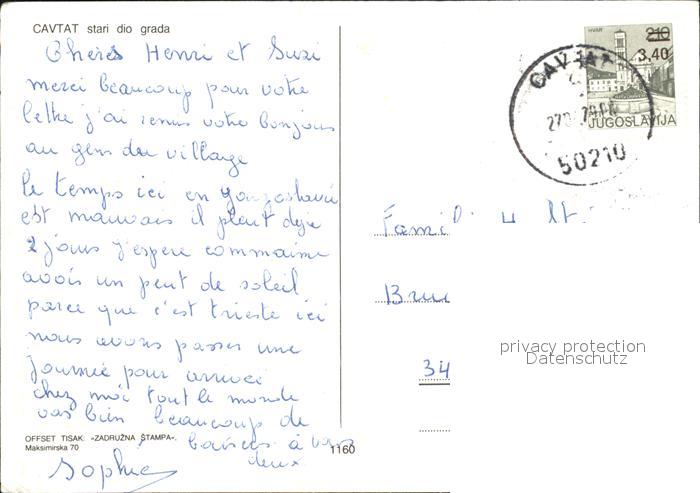 CAVTAT stari dio grada
Chères Henri et Suzi
merci beaucoup pour votre
lettre j'ai remis votre bonjour
au gens du village
le temps ici en
est mauvais il pleut deja
2 jours j'espere commaime
avois un peut de soleil
parce que c'est trieste ici
nous avons passer une
journée pour arrivée
chez moi tout le monde
vas bien beaucoup de
baisers à vous
deux
Sophie
OFFSET TISAK: «ZADRUŽNA ŠTAMPA»,
Maksimirska 70
1160
HVAR
210
3,40
JUGOSLAVIJA
CAVTAT
50210
Famil
34
privacy protection
Datenschutz